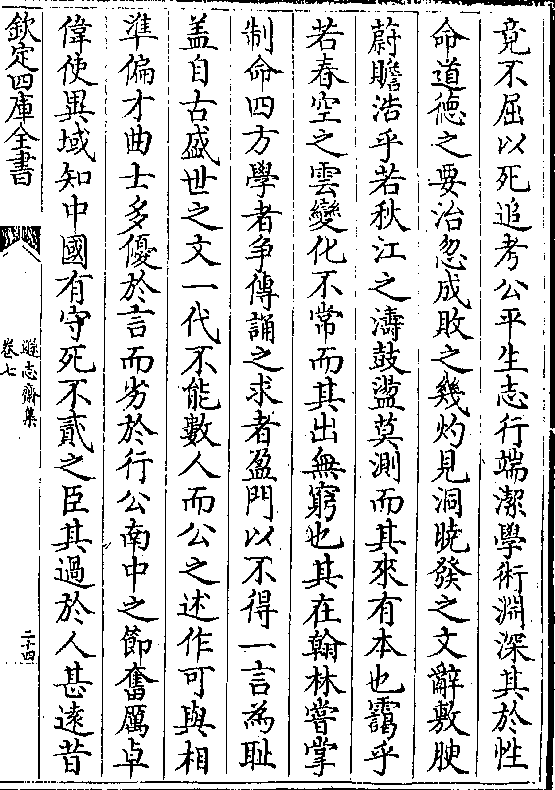 竟不屈以死追考公平生志行端潔學術淵深其於性
命道徳之要治忽成敗之幾灼見洞曉發之文辭敷腴
蔚贍浩乎若秋江之濤鼓盪莫測而其來有本也靄乎
若春空之雲變化不常而其出無窮也其在翰林嘗掌
制命四方學者争傳誦之求者盈門以不得一言為恥
盖自古盛世之文一代不能數人而公之述作可與相
準偏才曲士多優於言而劣於行公南中之節奮厲卓
偉使異域知中國有守死不貳之臣其過於人甚逺昔
欽定四庫全書
遜志齋集
卷七
二十四